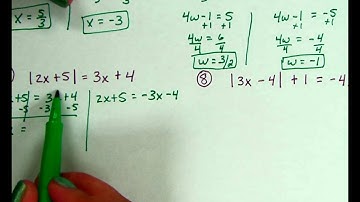 x = 5/3
x = -3
4w - 1 = 5
+1 +1
4w = 6
4 4
w = 3/2
4w - 1 = -5
+1 +1
4w = -4
4 4
w = -1
|2x+5| = 3x + 4
+5 = 3 +4
-5 -3 -5
=
2x+5 = -3x-4
⑧ |3x - 4| + 1 = -4